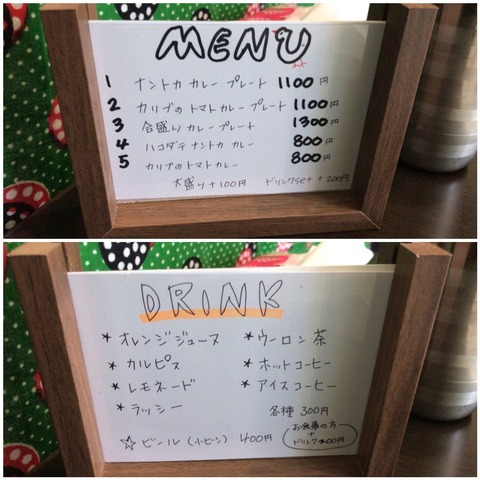 MENU
1 ナントカ カレー プレート 1100円
2 カリブのトマトカレープレート 1100円
3 合盛りカレープレート 1300円
4 ハコダテナントカ カレー 800円
5 カリブのトマトカレー 800円
大盛り+100円 ドリンクset+200円
DRINK
* オレンジジュース * ウーロン茶
* カルピス * ホットコーヒー
* レモネード * アイスコーヒー
* ラッシー 各種 300円
☆ ビール(小ビン) 400円
お食事の方
+
ドリンク200円